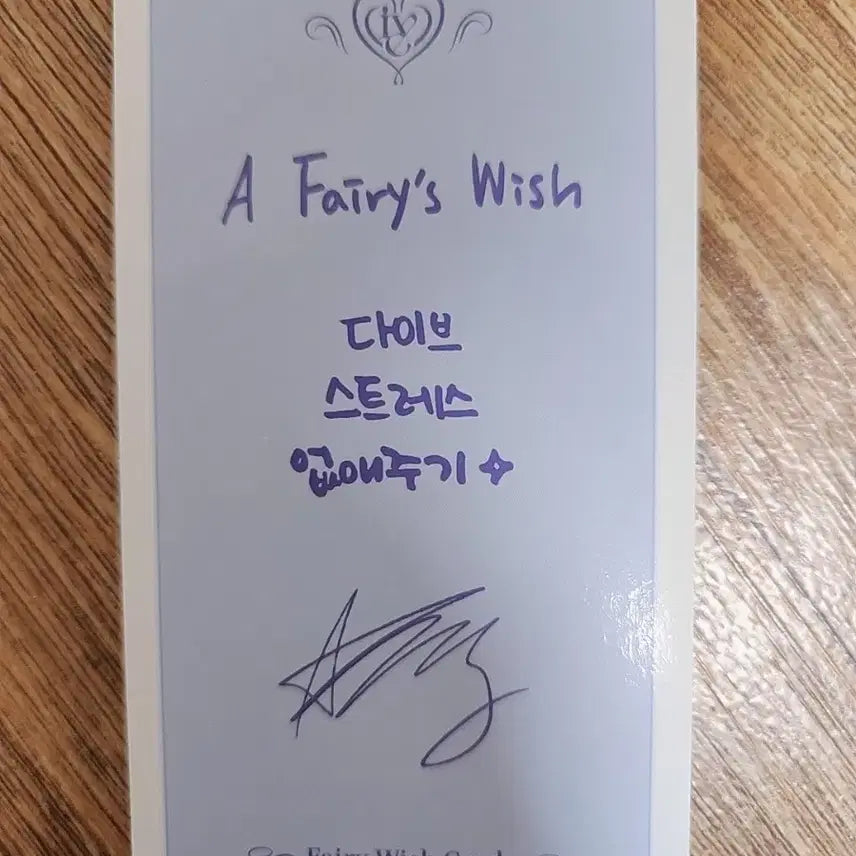 IVE
A Fairy's Wish
다이브
스트레스
없애주기
Fairy Wish Card